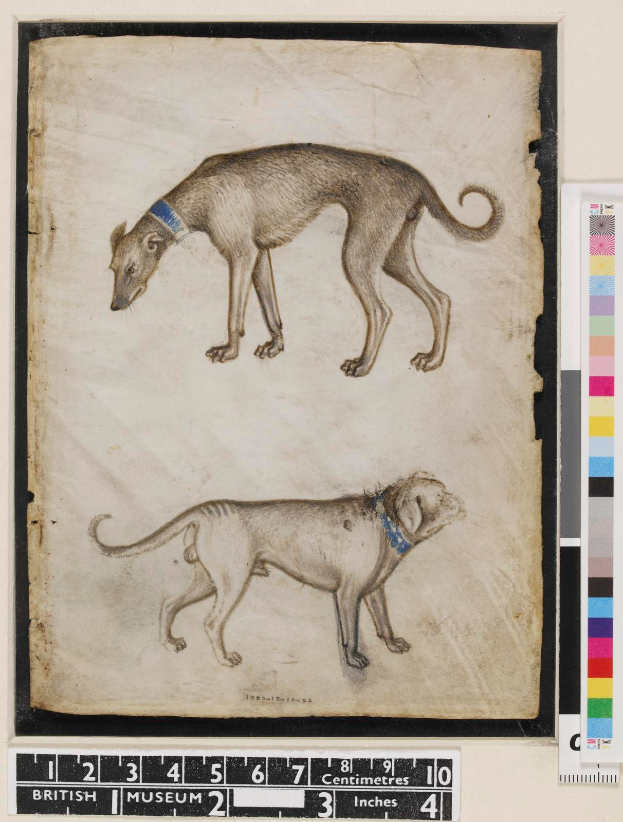 1 2 3 4 5 6 7 8 9 10
Centimetres
BRITISH 1 MUSEUM 2 3 Inches 4